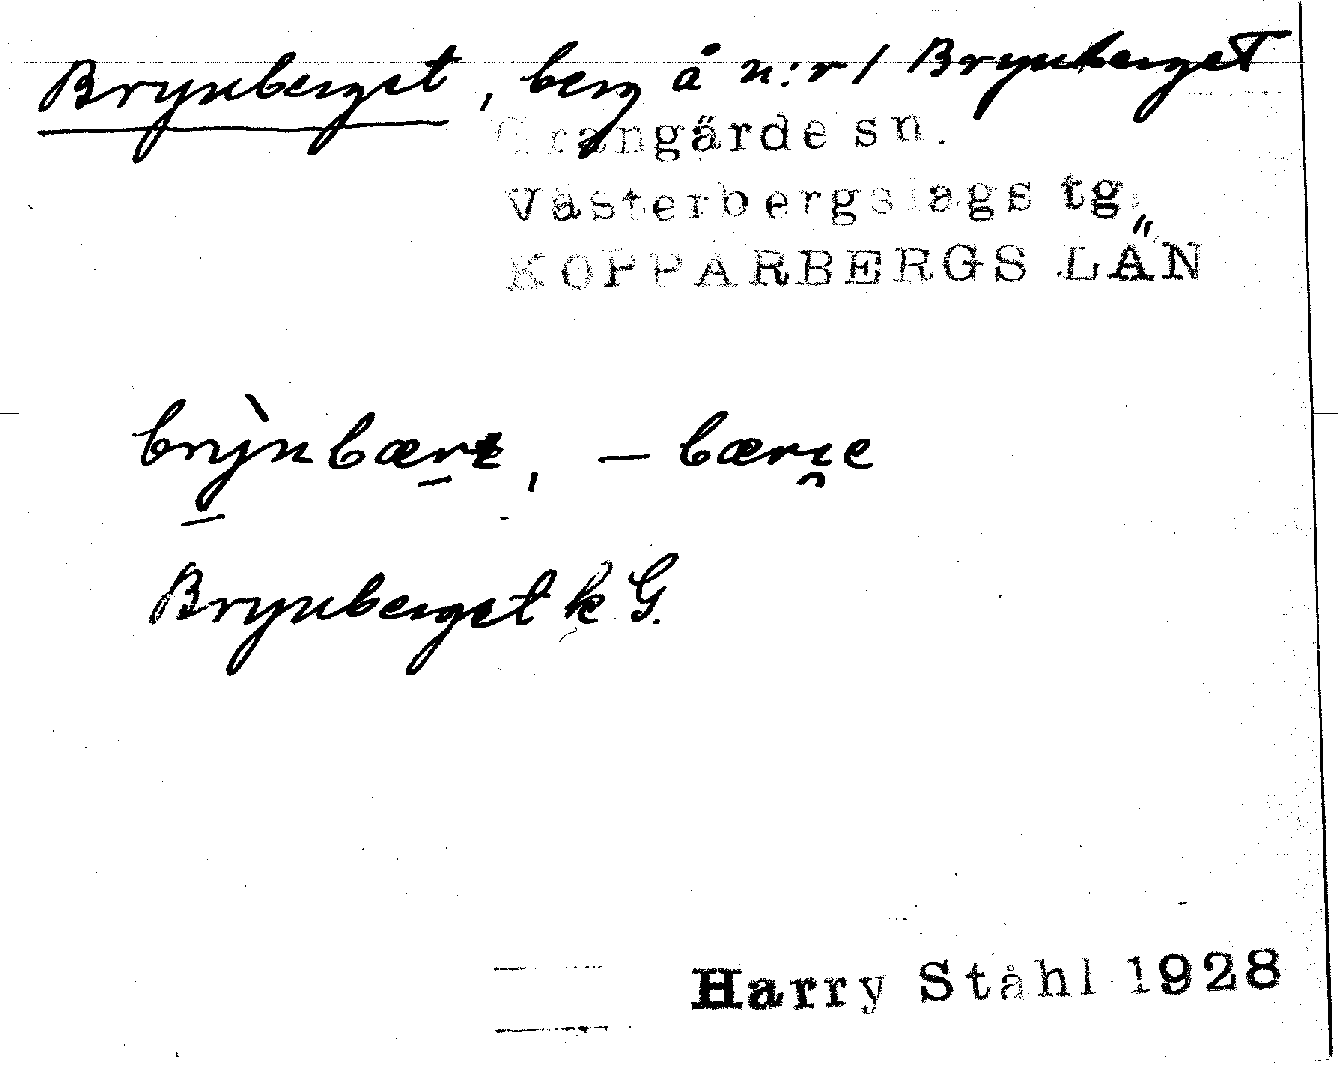 Brynberget, berg å n:r 1 Brynberget
Grangärde sn.
Västerbergslags tg.
KOPPARBERGS LÄN
brỳnbærɛ, – bærı̯e
Brynberget k G.
Harry Ståhl 1928